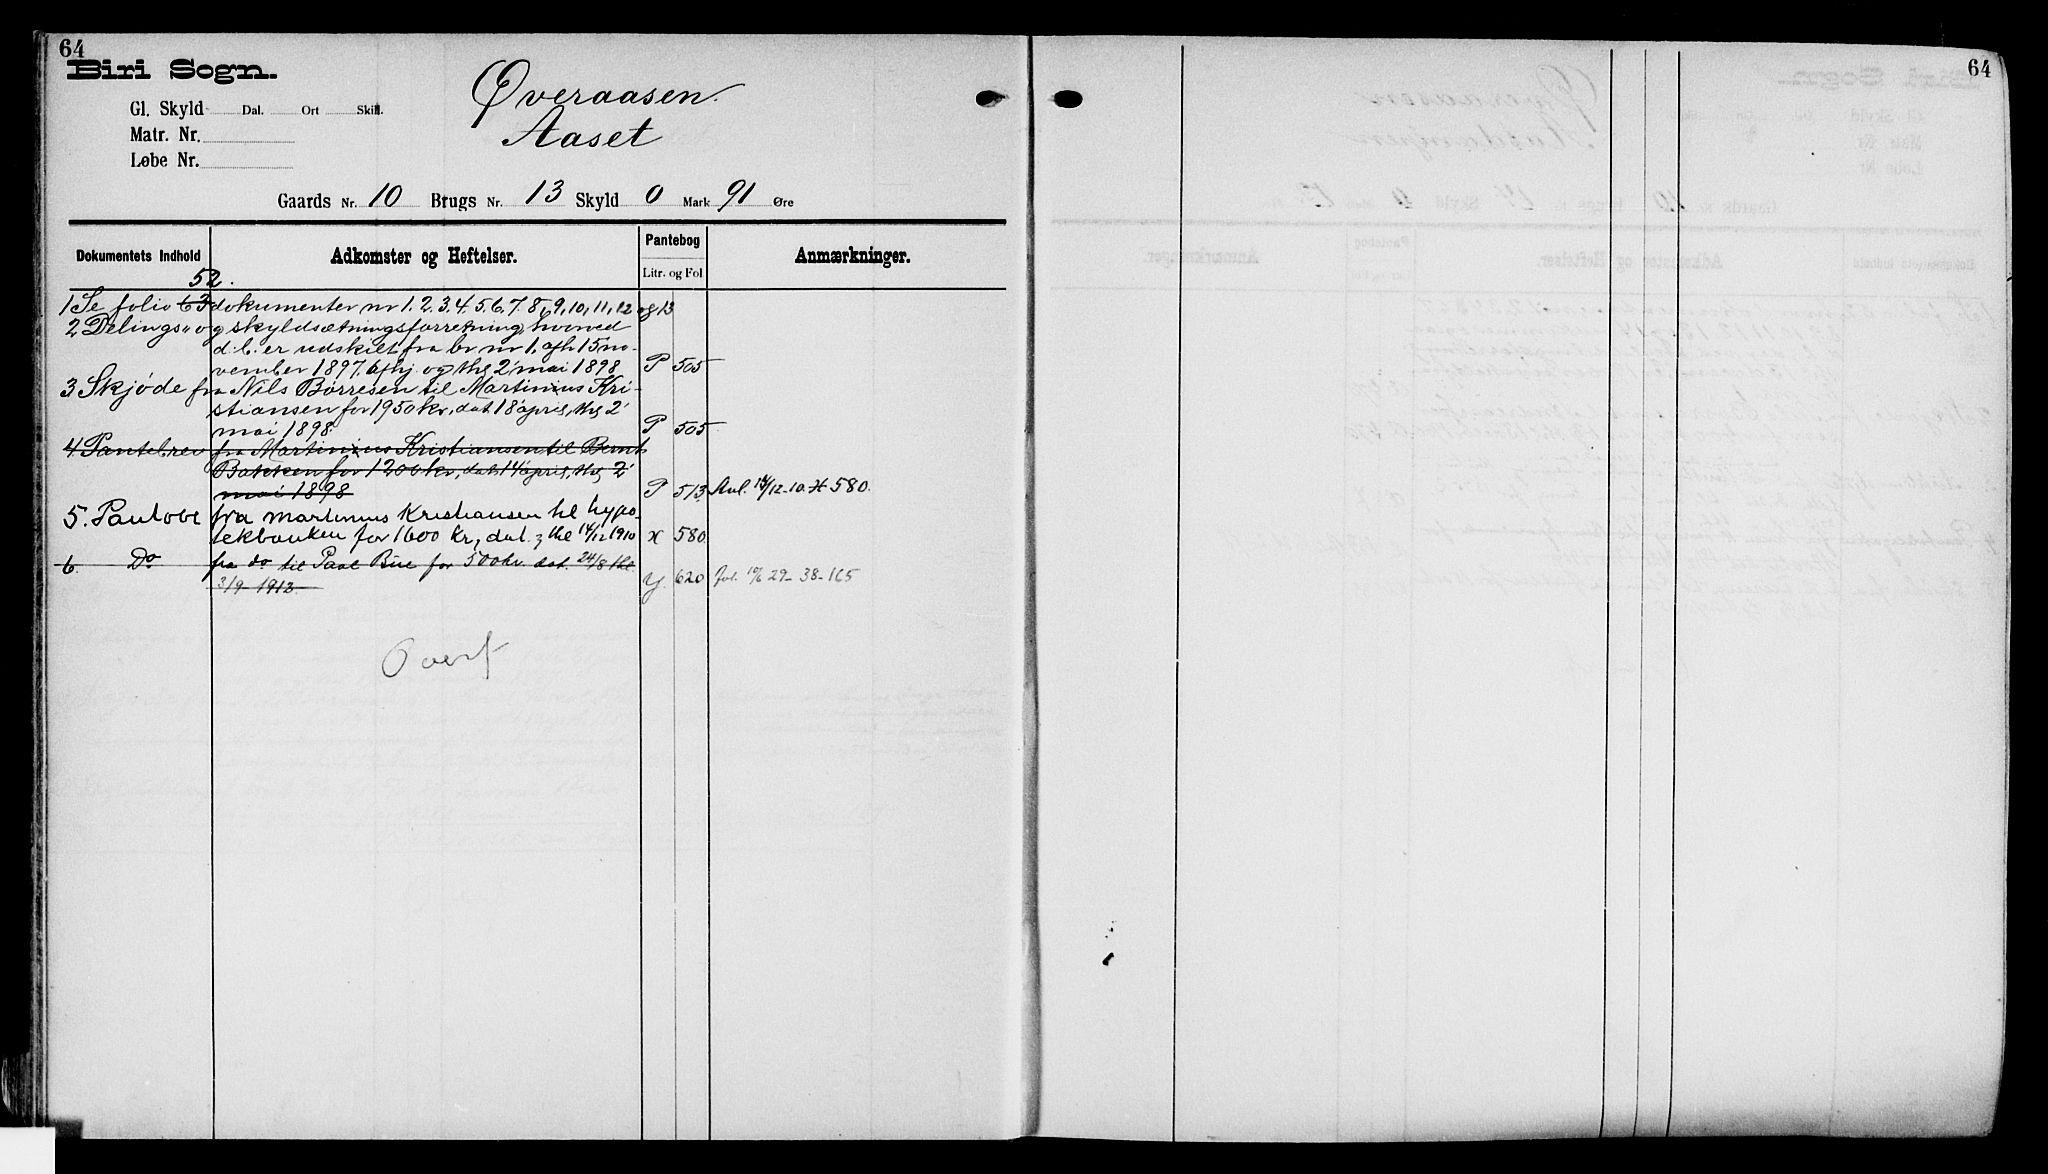 64
Biri Sogn.
Øveraasen.
Aaset
Gl. Skyld Dal. Ort Skill.
Matr. Nr.
Løbe Nr.
Gaards Nr. 10 Brugs Nr. 13 Skyld 0 Mark 91 Øre
Dokumentets Indhold Adkomster og Heftelser. Pantebog Litr. og Fol Anmærkninger.
52.
1 Se folio 63 dokumenter nr 1. 2. 3. 4. 5. 6. 7. 8, 9, 10, 11, 12 og 13
2 Delings- og skyldsætningsforretning, hvorved
d. b. er udskilt fra br nr 1, afh 15 no-
vember 1897, afhj. og thg 2 mai 1898 P 505
3 Skjøde fra Nils Børresen til Martinius Kri-
stiansen for 1950 kr, dat 18 april, thg 2
mai 1898. P 505
4 Pantebrev fra Martinius Kristiansen til Bernt
Bakken for 1200 kr, dat 14 april, thg 2
mai 1898 P 513 Avl. 14/12-10. H 580.
5. Pantobl fra Martinius Kristiansen til hypo-
tekbanken for 1600 kr, dat. , thl 14/12 1910 X 580
6. Do fra do til Paal Bue for 500 kr. dat. 24/8 thl.
3/9 1913 Y. 620 29-38-165
Overf
64